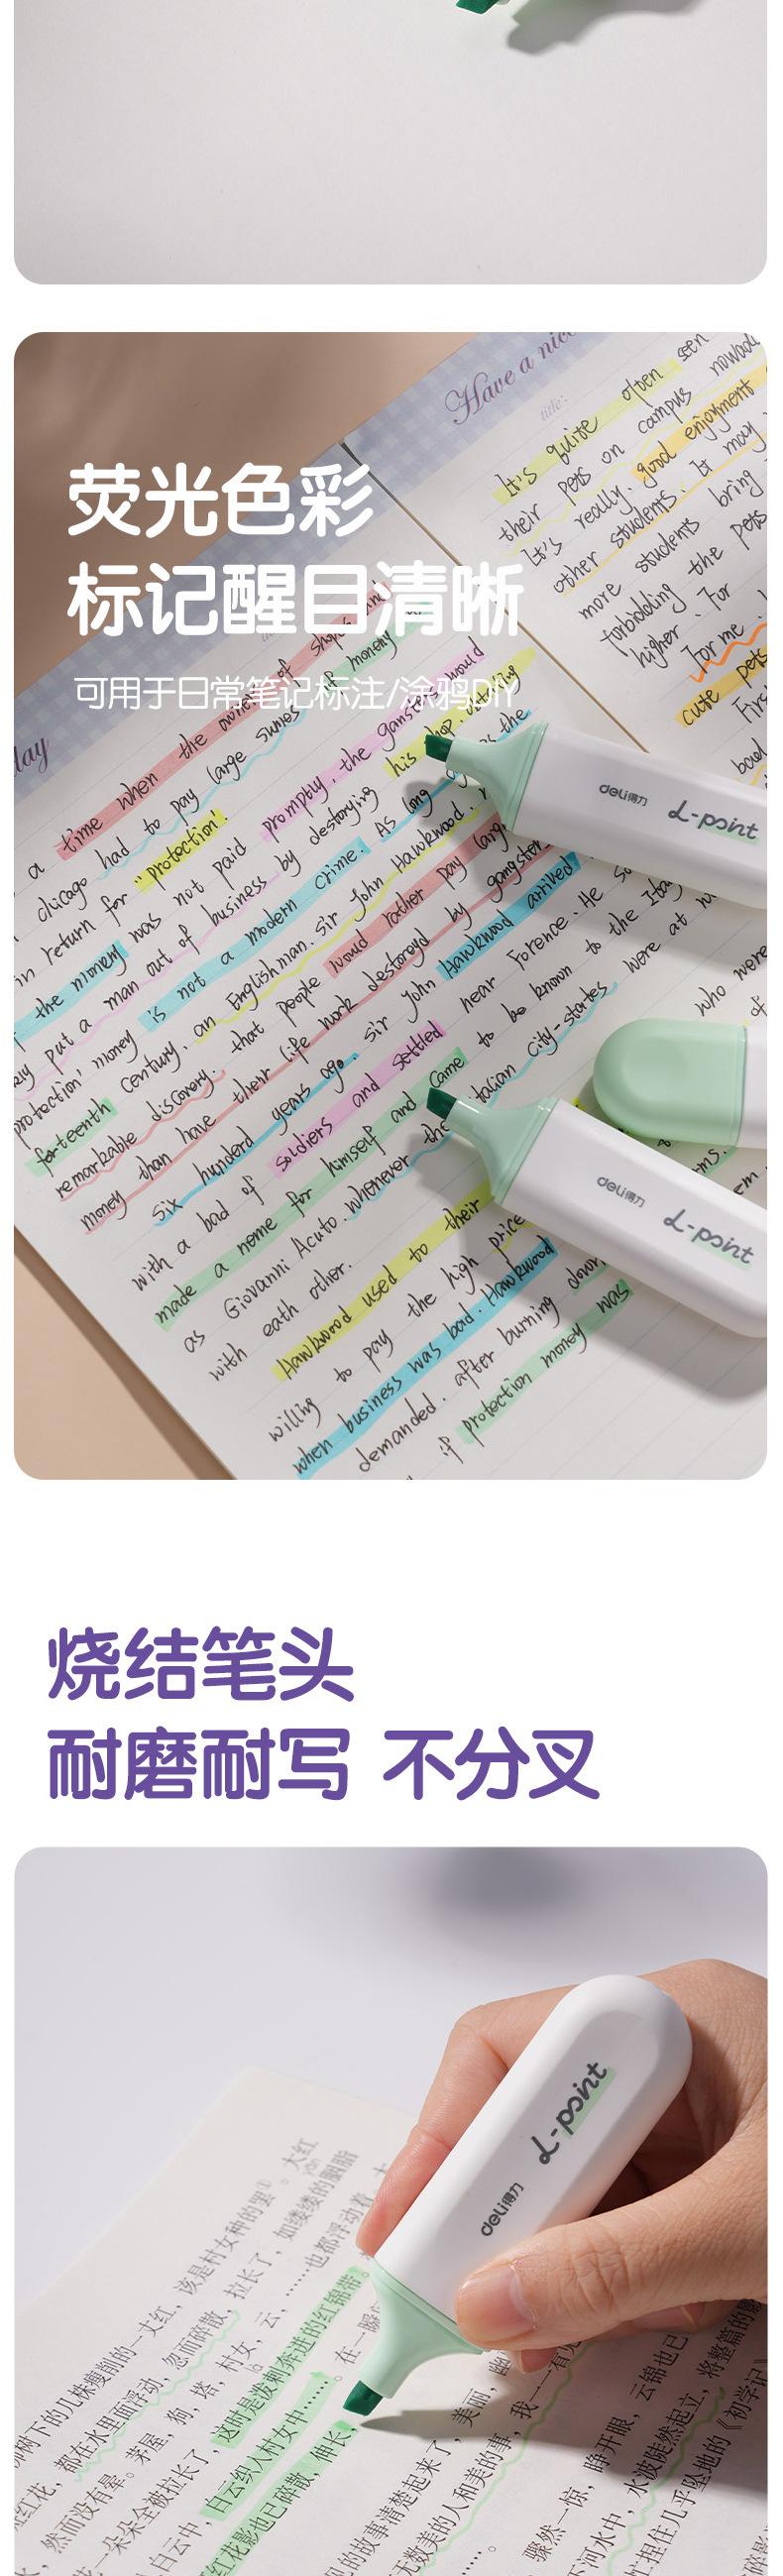 Have a nice
title:
It's quite often seen
their pets on campus nowada
It's really. good enjoyment
other students. It may
more students bring
forbidding the pets
higher. For
For me.
cute pets
First
荧光色彩
标记醒目清晰
可用于日常笔记标注/涂鸦DIY
day
a time when the owners of shops and
chicago had to pay large sums of money
in return for "protection".
the money was not paid promptly, the gansters would
put a man out of business by destorying his shop.
protection' money is not a modern crime. As long as the
forteenth century. an Englishman. sir John Hawkwood.
remarkable discovery. that people would rather pay large
money than have their life work destoroyd by gangsters
six hunderd years ago. sir John Hawkwood arrived
with a bad of soldiers and settled near Forence. He
made a name for himself and came to be known to the Ita
as Giovanni Acuto. whenever the Italian city-states were at
with eath other.
Hawkwood used to their
willing to pay the high price
demanded.
when business was bad. Hawkwood
after burning down
if protection money was
who were
of
deli得力 L-point
deli得力 L-point
烧结笔头
耐磨耐写 不分叉
deli得力 L-point
树下的几株瘦削的一丈红，该是村女种的罢。大红
红花，都在水里面浮动，忽而碎散，拉长了，如缕缕的胭脂
，然而没有晕。茅屋，狗，塔，村女，云，……也都浮动着。大
一朵朵全被拉长了，这时是泼剌奔进的红锦带。
白云中，白云织入村女中……。在一瞬
红花影也已碎散，伸长，
的故事清楚起来了，美丽，幽
无数美的人和美的事，我一
骤然一惊，睁开眼，云锦也已
河水中，水波陡然起立，将整篇的影
捏住几乎坠地的《初学记》